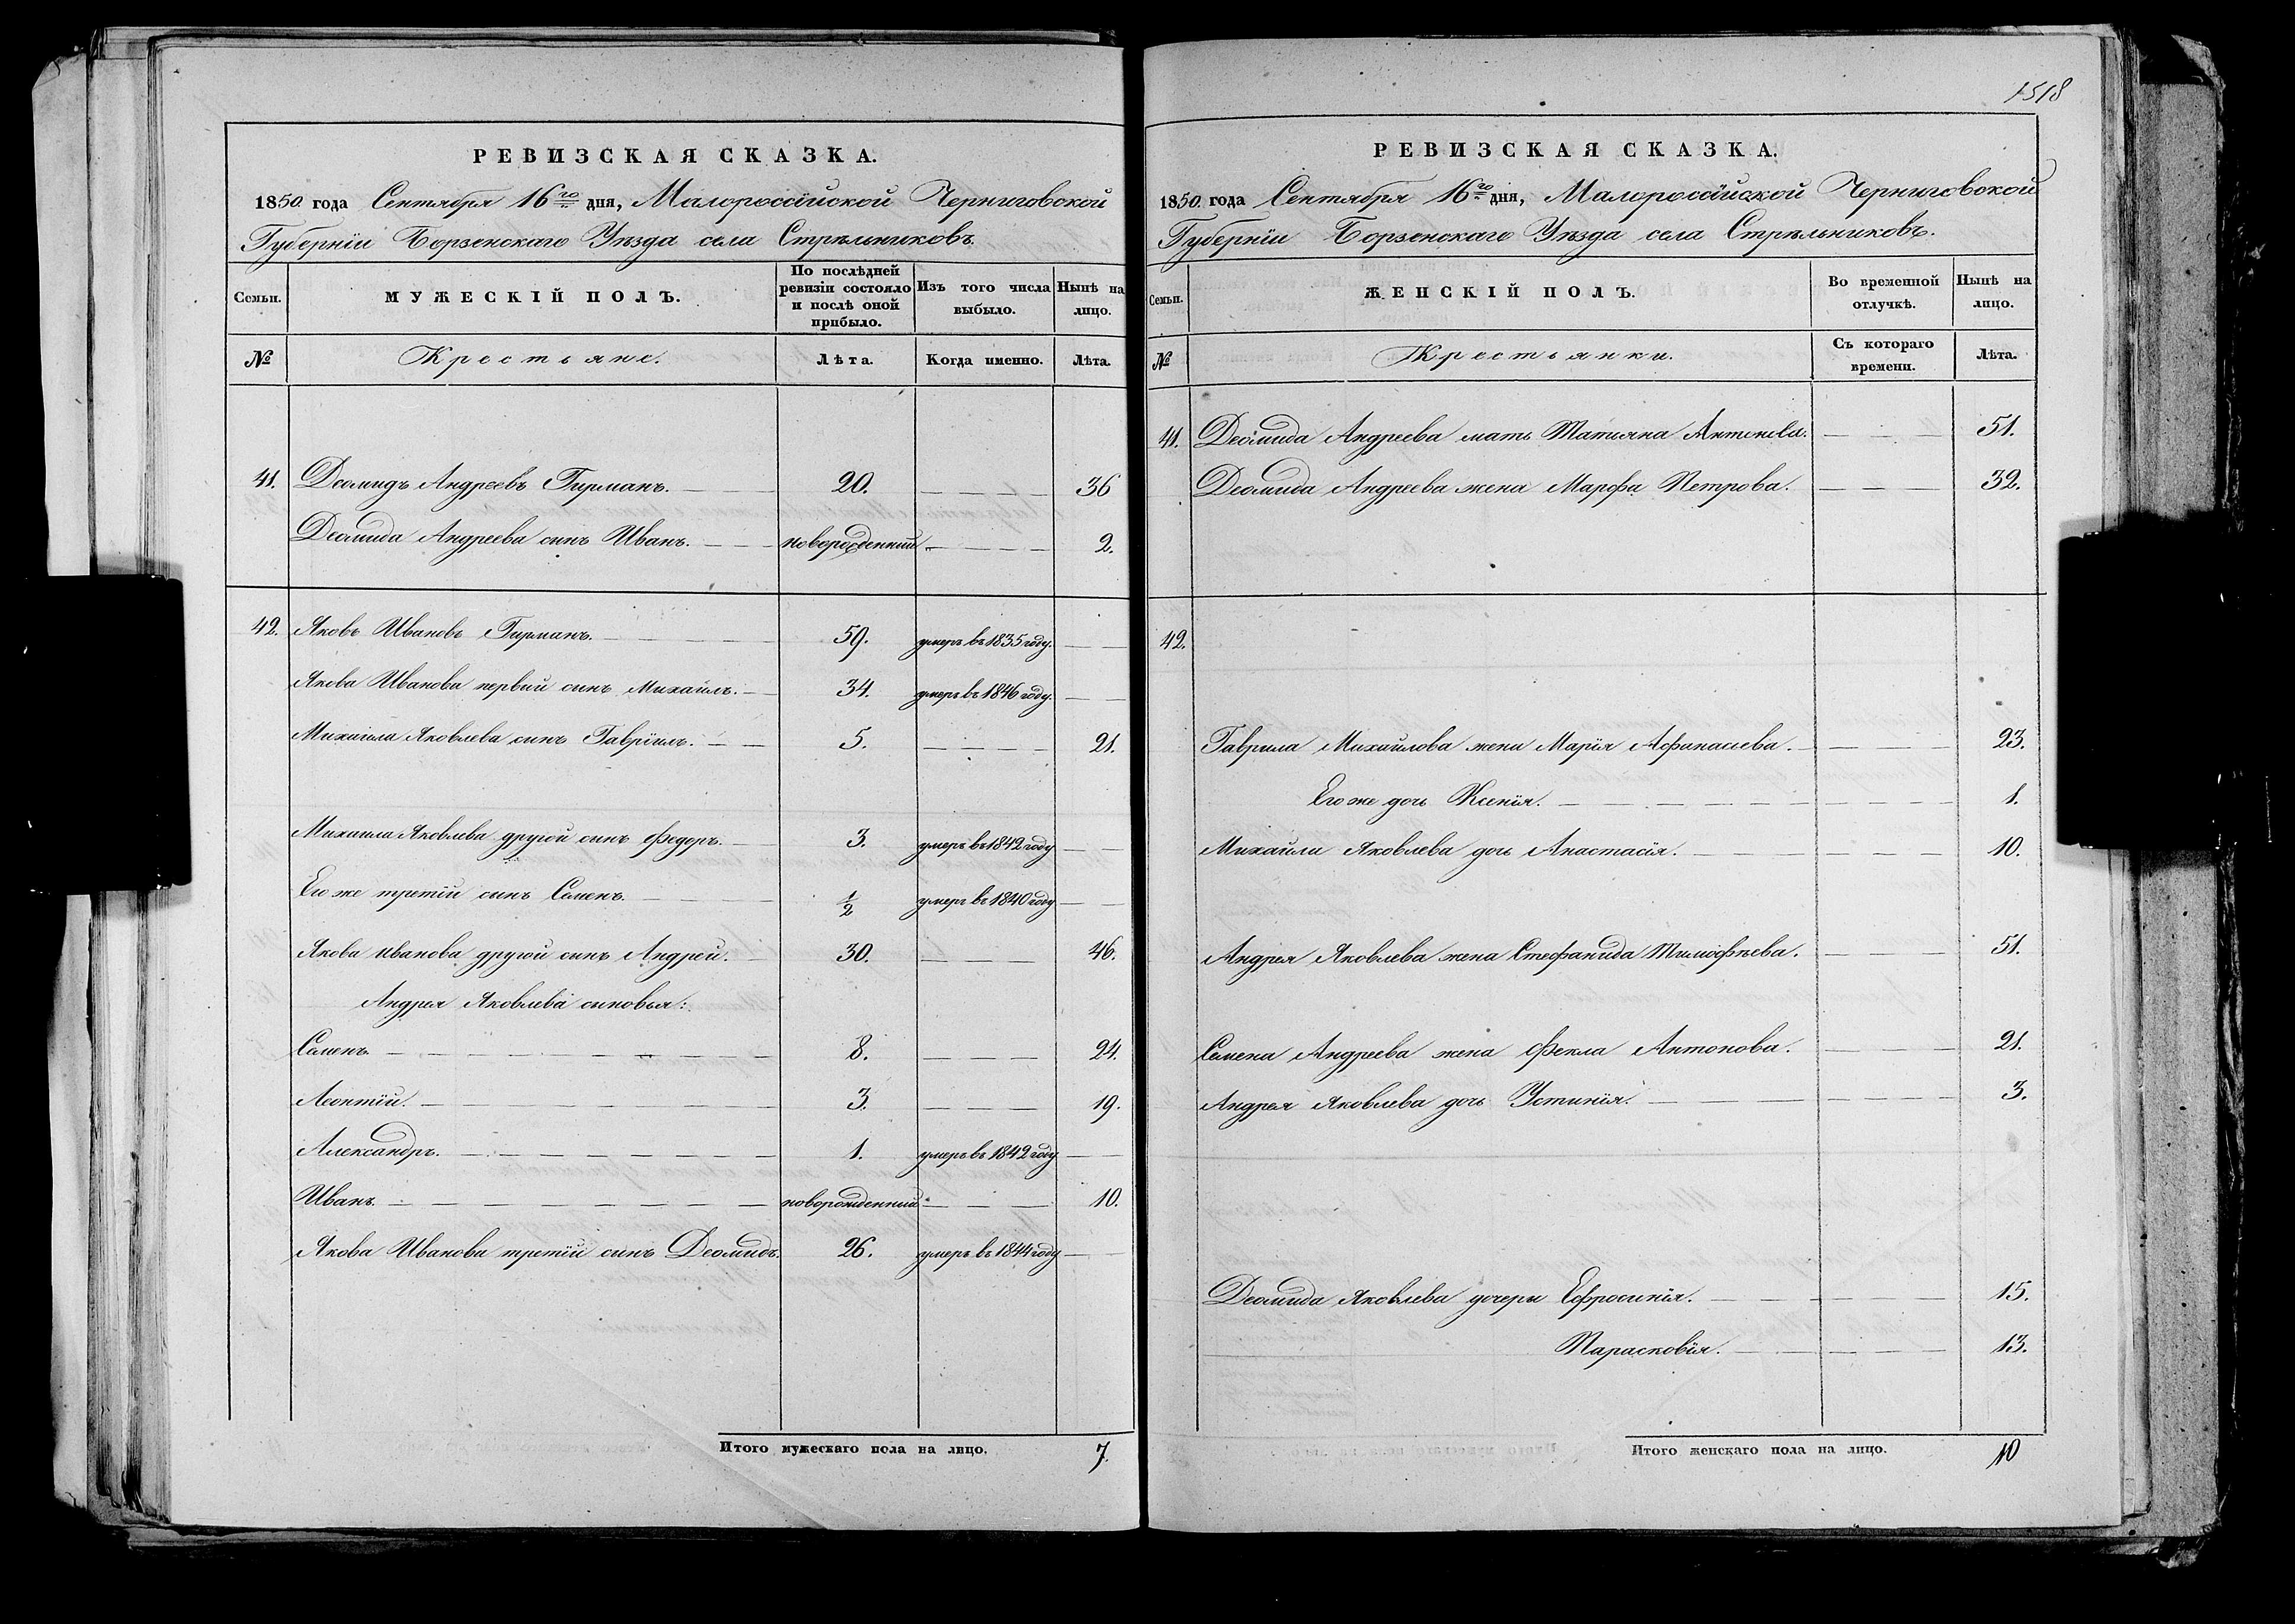 РЕВИЗСКАЯ СКАЗКА.
1850 года Сентября 16го дня, Малороссійской Черниговской
Губерніи Борзенскаго Уѣзда села Стрѣльниковъ.
Семьи. МУЖЕСКІЙ ПОЛЪ. По послѣдней ревизіи состояло и послѣ оной прибыло. Изъ того числа выбыло. Нынѣ на лицо.
№ Крестьяне. Лѣта. Когда именно. Лѣта.
41. Деомидъ Андреевъ Гирманъ. 20. 36
Деомида Андреева синъ Иванъ. новорожденний 2.
42. Яковъ Ивановъ Гирманъ. 59. умеръ въ 1835 году.
Якова Иванова первий синъ Михайлъ. 34. умеръ въ 1846 году.
Михаила Яковлева синъ Гавріилъ. 5. 21.
Михаила Яковлева другой синъ Федоръ. 3. умеръ въ 1842 году
Его же третій синъ Семенъ. 1/2 умеръ въ 1840 году
Якова Иванова другой синъ Андрей. 30. 46.
Андрея Яковлева синовья:
Семенъ. 8. 24.
Леонтій. 3. 19.
Александръ. 1. умеръ въ 1842 году
Иванъ. новорожденний 10.
Якова Иванова третій синъ Деомидъ. 26. умеръ въ 1844 году
Итого мужескаго пола на лицо. 7.
1518
РЕВИЗСКАЯ СКАЗКА.
1850 года Сентября 16го дня, Малороссійской Черниговской
Губерніи Борзенскаго Уѣзда села Стрѣльниковъ.
Семьи. ЖЕНСКІЙ ПОЛЪ. Во временной отлучкѣ. Нынѣ на лицо.
№ Крестьянки. Съ котораго времени. Лѣта.
41. Деомида Андреева мать Татьяна Антонова. 51.
Деомида Андреева жена Марфа Петрова. 32.
42.
Гаврила Михайлова жена Марія Афанасіева. 23.
Его же дочь Ксенія. 1.
Михайла Яковлева дочь Анастасія. 10.
Андрея Яковлева жена Стефанида Тимофѣева. 51.
Семена Андреева жена Фекла Антонова. 21.
Андрея Яковлева дочь Устинія. 3.
Деомида Яковлева дочери Ефросинія. 15.
Парасковія. 13.
Итого женскаго пола на лицо. 10